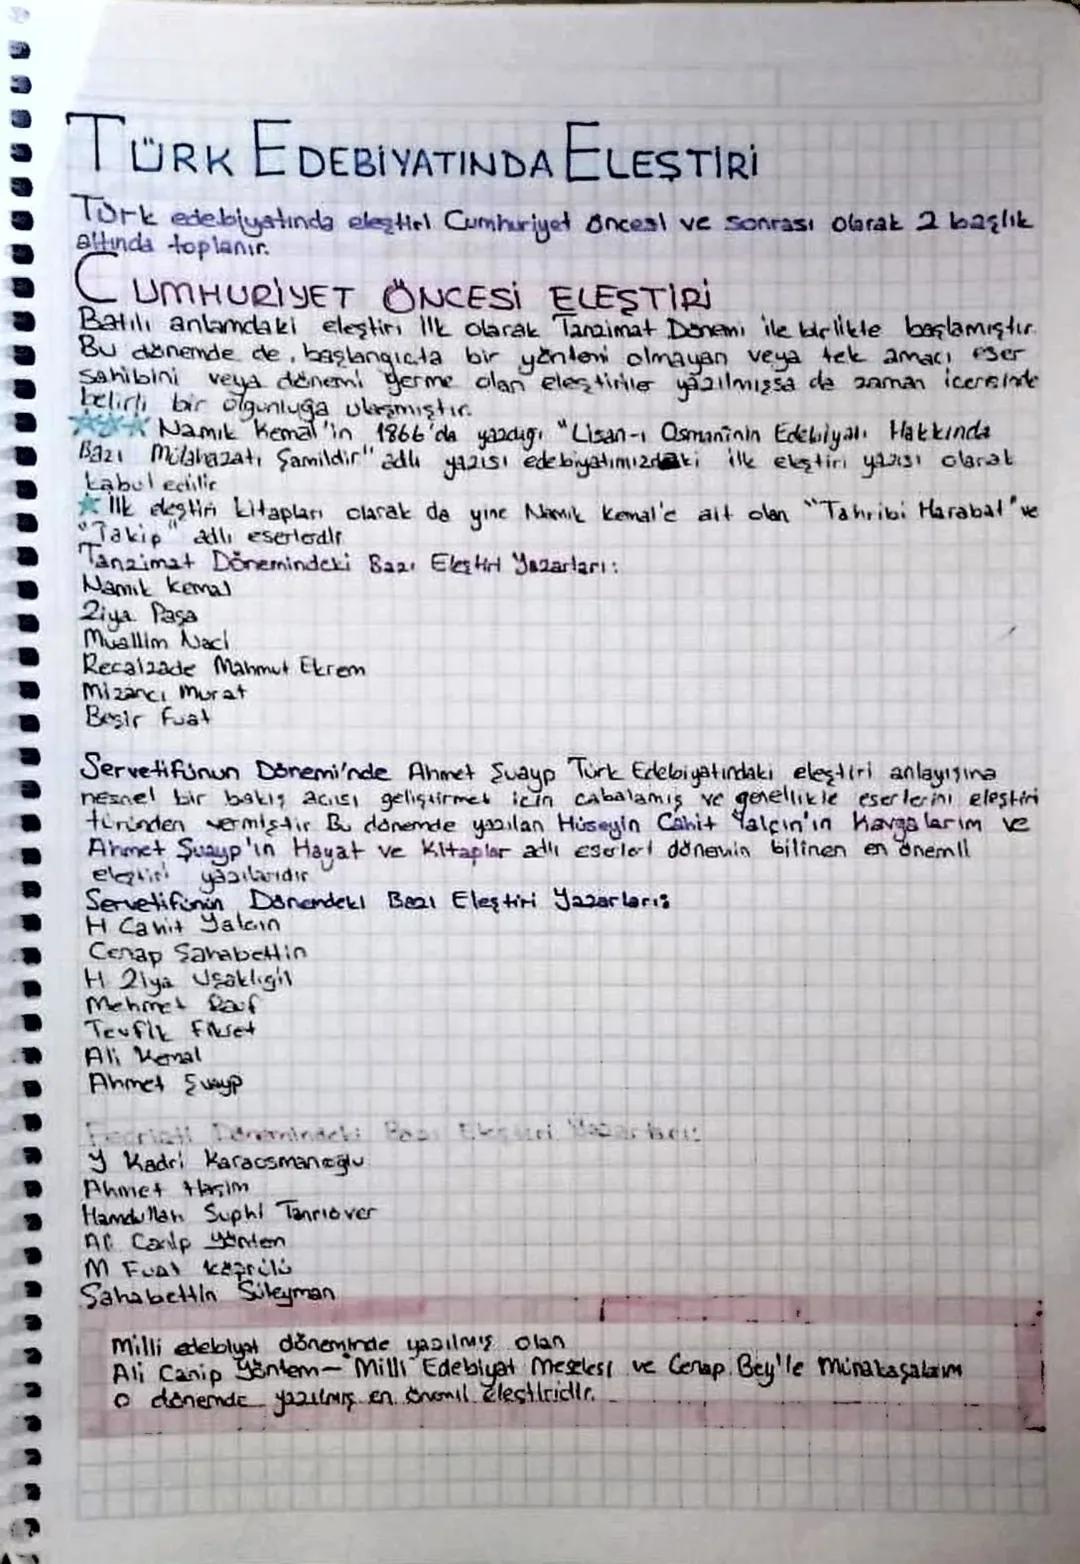 TÜRK EDEBİYATINDA ELEŞTİRİ
Türk edebiyatında eleştiri Cumhuriyet öncesi ve sonrası olarak 2 başlık
altında toplanır.
CUMHURİYET ÖNCESİ ELEŞTİRİ
Batılı anlamdaki eleştiri ilk olarak Tanzimat Dönemi ile birlikte başlamıştır.
Bu dönemde de, başlangıçta bir yöntemi olmayan veya tek amacı eser
sahibini veya dönemi yerme olan eleştiriler yazılmışsa da zaman içerisinde
belirli bir olgunluğa ulaşmıştır.
Namık Kemal'in 1866'da yazdığı "Lisan-ı Osmaninin Edebiyatı Hakkında
Bazı Mülahazatı Şamildir" adlı yazısı edebiyatımızdaki ilk eleştiri yazısı olarak
kabul edilir
İlk eleştiri kitapları olarak da yine Namık Kemal'e ait olan "Tahribi Harabat" ve
"Takip" adlı eserlerdir
Tanzimat Dönemindeki Bazı Eleştiri Yazarları:
Namık Kemal
Ziya Paşa
Muallim Naci
Recaizade Mahmut Ekrem
Mizancı Murat
Beşir Fuat
Servetifünun Dönemi'nde Ahmet Şuayp Türk Edebiyatındaki eleştiri anlayışına
nesnel bir bakış açısı geliştirmek için çabalamış ve genellikle eserlerini eleştiri
türünden vermiştir Bu dönemde yazılan Hüseyin Cahit Yalçın'ın Kavgalarım ve
Ahmet Şuayp'ın Hayat ve Kitaplar adlı eserleri dönemin bilinen en önemli
eleştiri yazılarıdır
Servetifünun Dönemdeki Bazı Eleştiri Yazarları:
H Cahit Yalçın
Cenap Şahabettin
H Ziya Uşaklıgil
Mehmet Rauf
Tevfik Fikret
Ali Kemal
Ahmet Şuayp
Fecriati Dönemindeki Bazı Eleştiri Yazarları:
Y Kadri Karaosmanoğlu
Ahmet Haşim
Hamdullah Suphi Tanrıöver
Ali Canip Yöntem
M Fuat Köprülü
Şahabettin Süleyman
Milli edebiyat döneminde yazılmış olan
Ali Canip Yöntem - Milli Edebiyat Meselesi ve Cenap Bey'le Münakaşalarım
o dönemde yazılmış en önemli eleştiridir.